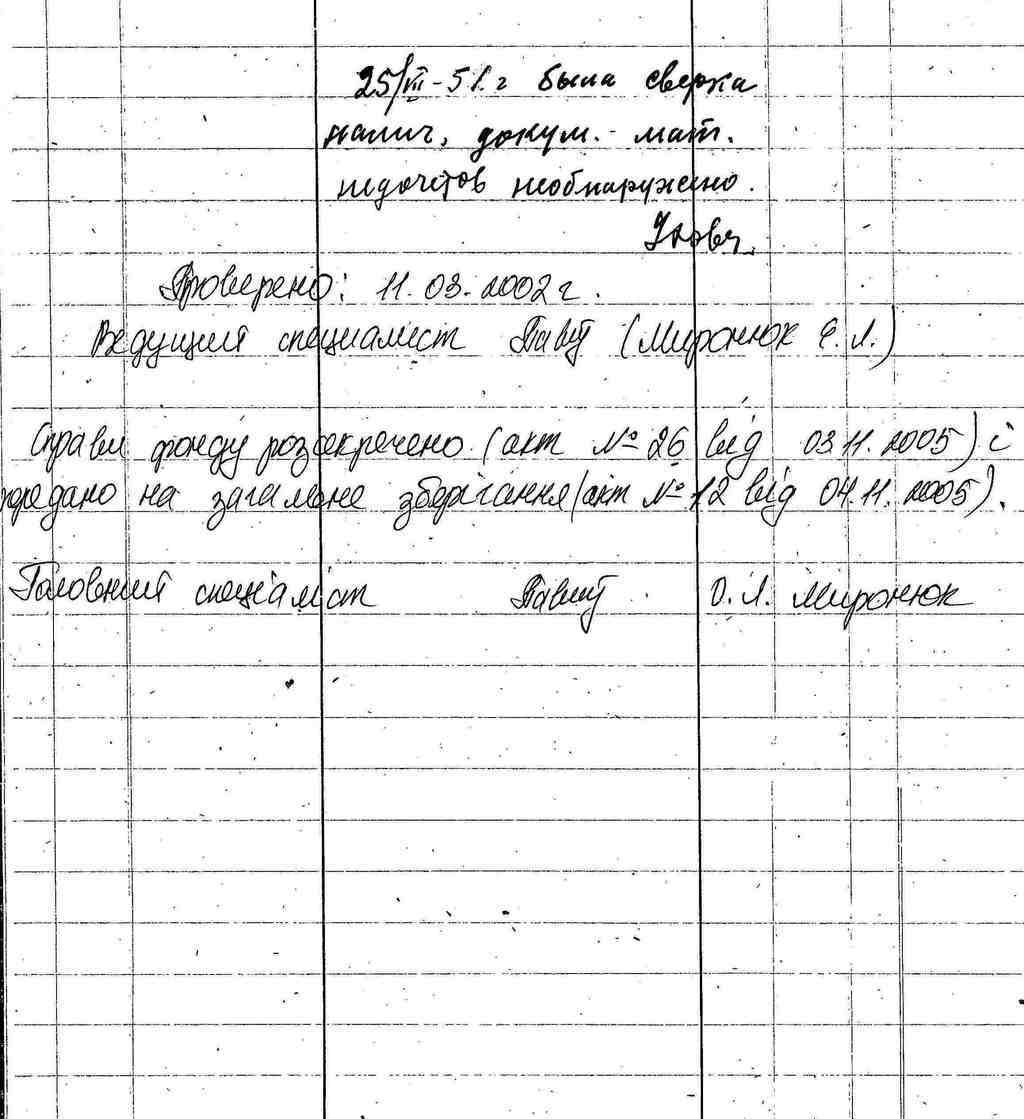 25/VII-51.г была сверка
налич. докум. мат.
недочетов необнаружено.
Проверено: 11.03.2002г.
Ведущий специалист (Миронюк Е.Л.)
Справи фонду розсекречено (акт №26 від 03.11.2005) і
передано на загальне зберігання (акт №12 від 04.11.2005).
Головний спеціаліст О.Л. Миронюк